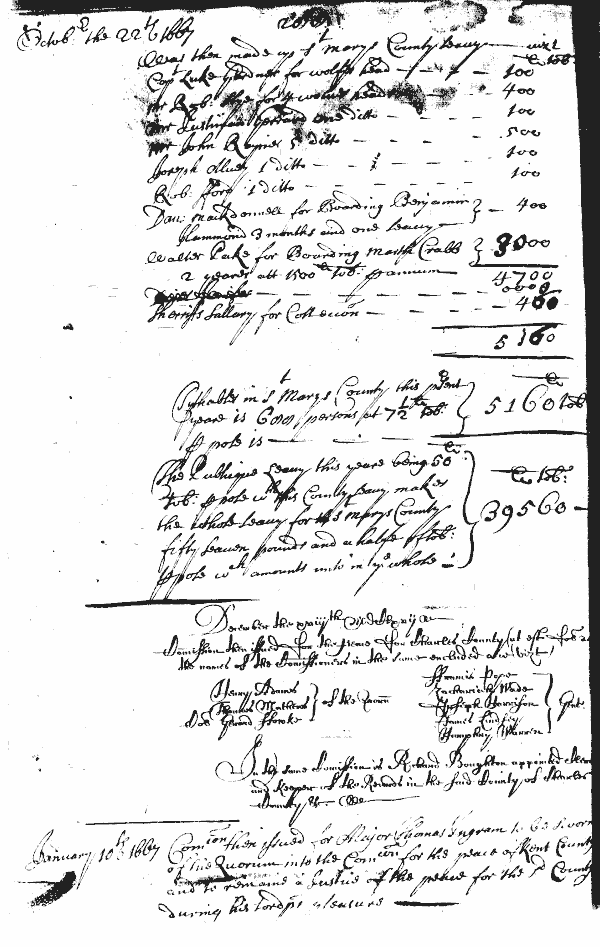 Octobr the 22th 1667
Was then made up St Marys County Leavy vizt
lb tob:
Cap Luke Gardner for wolfes head — — — 100
mr Rob: for 4 wolves heads — 400
mr one ditto — — — 100
mr John 5 ditto — — — 500
Joseph 1 ditto — — — 100
Rob: Ford 1 ditto — — — 100
Dan: Mackdonnell for Boarding Benjamin
Hammond 3 months and one Leavy } — 400
Walter Pake for Boarding Crabb
2 yeares att 1500 lb tob: p annum } 3000
4700
Sheriffs Sallary for Collecon — — — 460
5160
Tithables in St Marys County this psent
yeare is persons at 7½ lb tob:
p pole is — — — } 5160 lb tob
The Publique Leavy this yeare being 50 lb:
tob: p pole wth this County Leavy makes
the whole Leavy for St Marys County
fifty seaven pounds and a halfe of tob:
p pole wch amounts unto in ye whole } lb tob: 39560 —
December the
Comission then issued for the Peace for Charles County
the names of the Comissioners in the same encluded are vizt
Henry Adams
Thomas Mathews
Gerard Fowke } of the Quorum
Francis Pope
Zachariah Wade
Joseph Harrison
James Lindsey
Humphry Warren } Gent
In the same Comission is Richard Boughton appointed
and Keeper of the Records in the said County of Charles
County &c
January 10th 1667 Comcon then issued for Major Thomas Ingram to be sworn
of the Quorum into the Comcon for the peace of Kent County
and to remaine a Justice of the peace for the sd County
during his Lordps pleasure